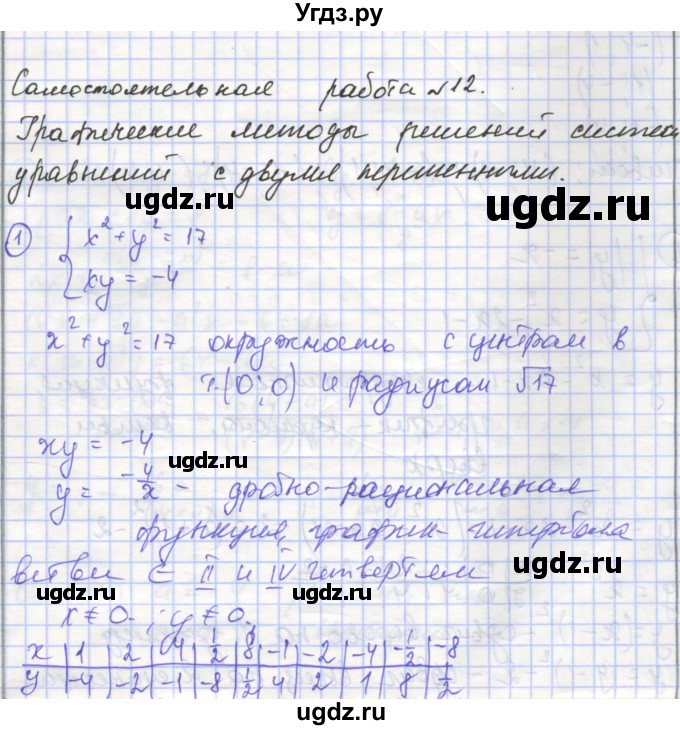 Угдз.ру
Самостоятельная работа №12.
Графические методы решений систем
уравнений с двумя переменными.
ugdz.ru ugdz.ru
1 { x² + y² = 17
xy = -4
x² + y² = 17 окружность с центром в
т.(0;0) и радиусом √17
ugdz.ru
xy = -4
ugdz.ru
y = -4/x - дробно-рациональная
функция, график - гипербола
ugdz.ru
ветви ∈ II и IV четвертям
ugdz.ru
x ≠ 0 ; y ≠ 0
x | 1 | 2 | 4 | 1/2 | 8 | -1 | -2 | -4 | -1/2 | -8
y | -4 | -2 | -1 | -8 | 1/2 | 4 | 2 | 1 | 8 | 1/2
ugdz.ru
ugdz.ru